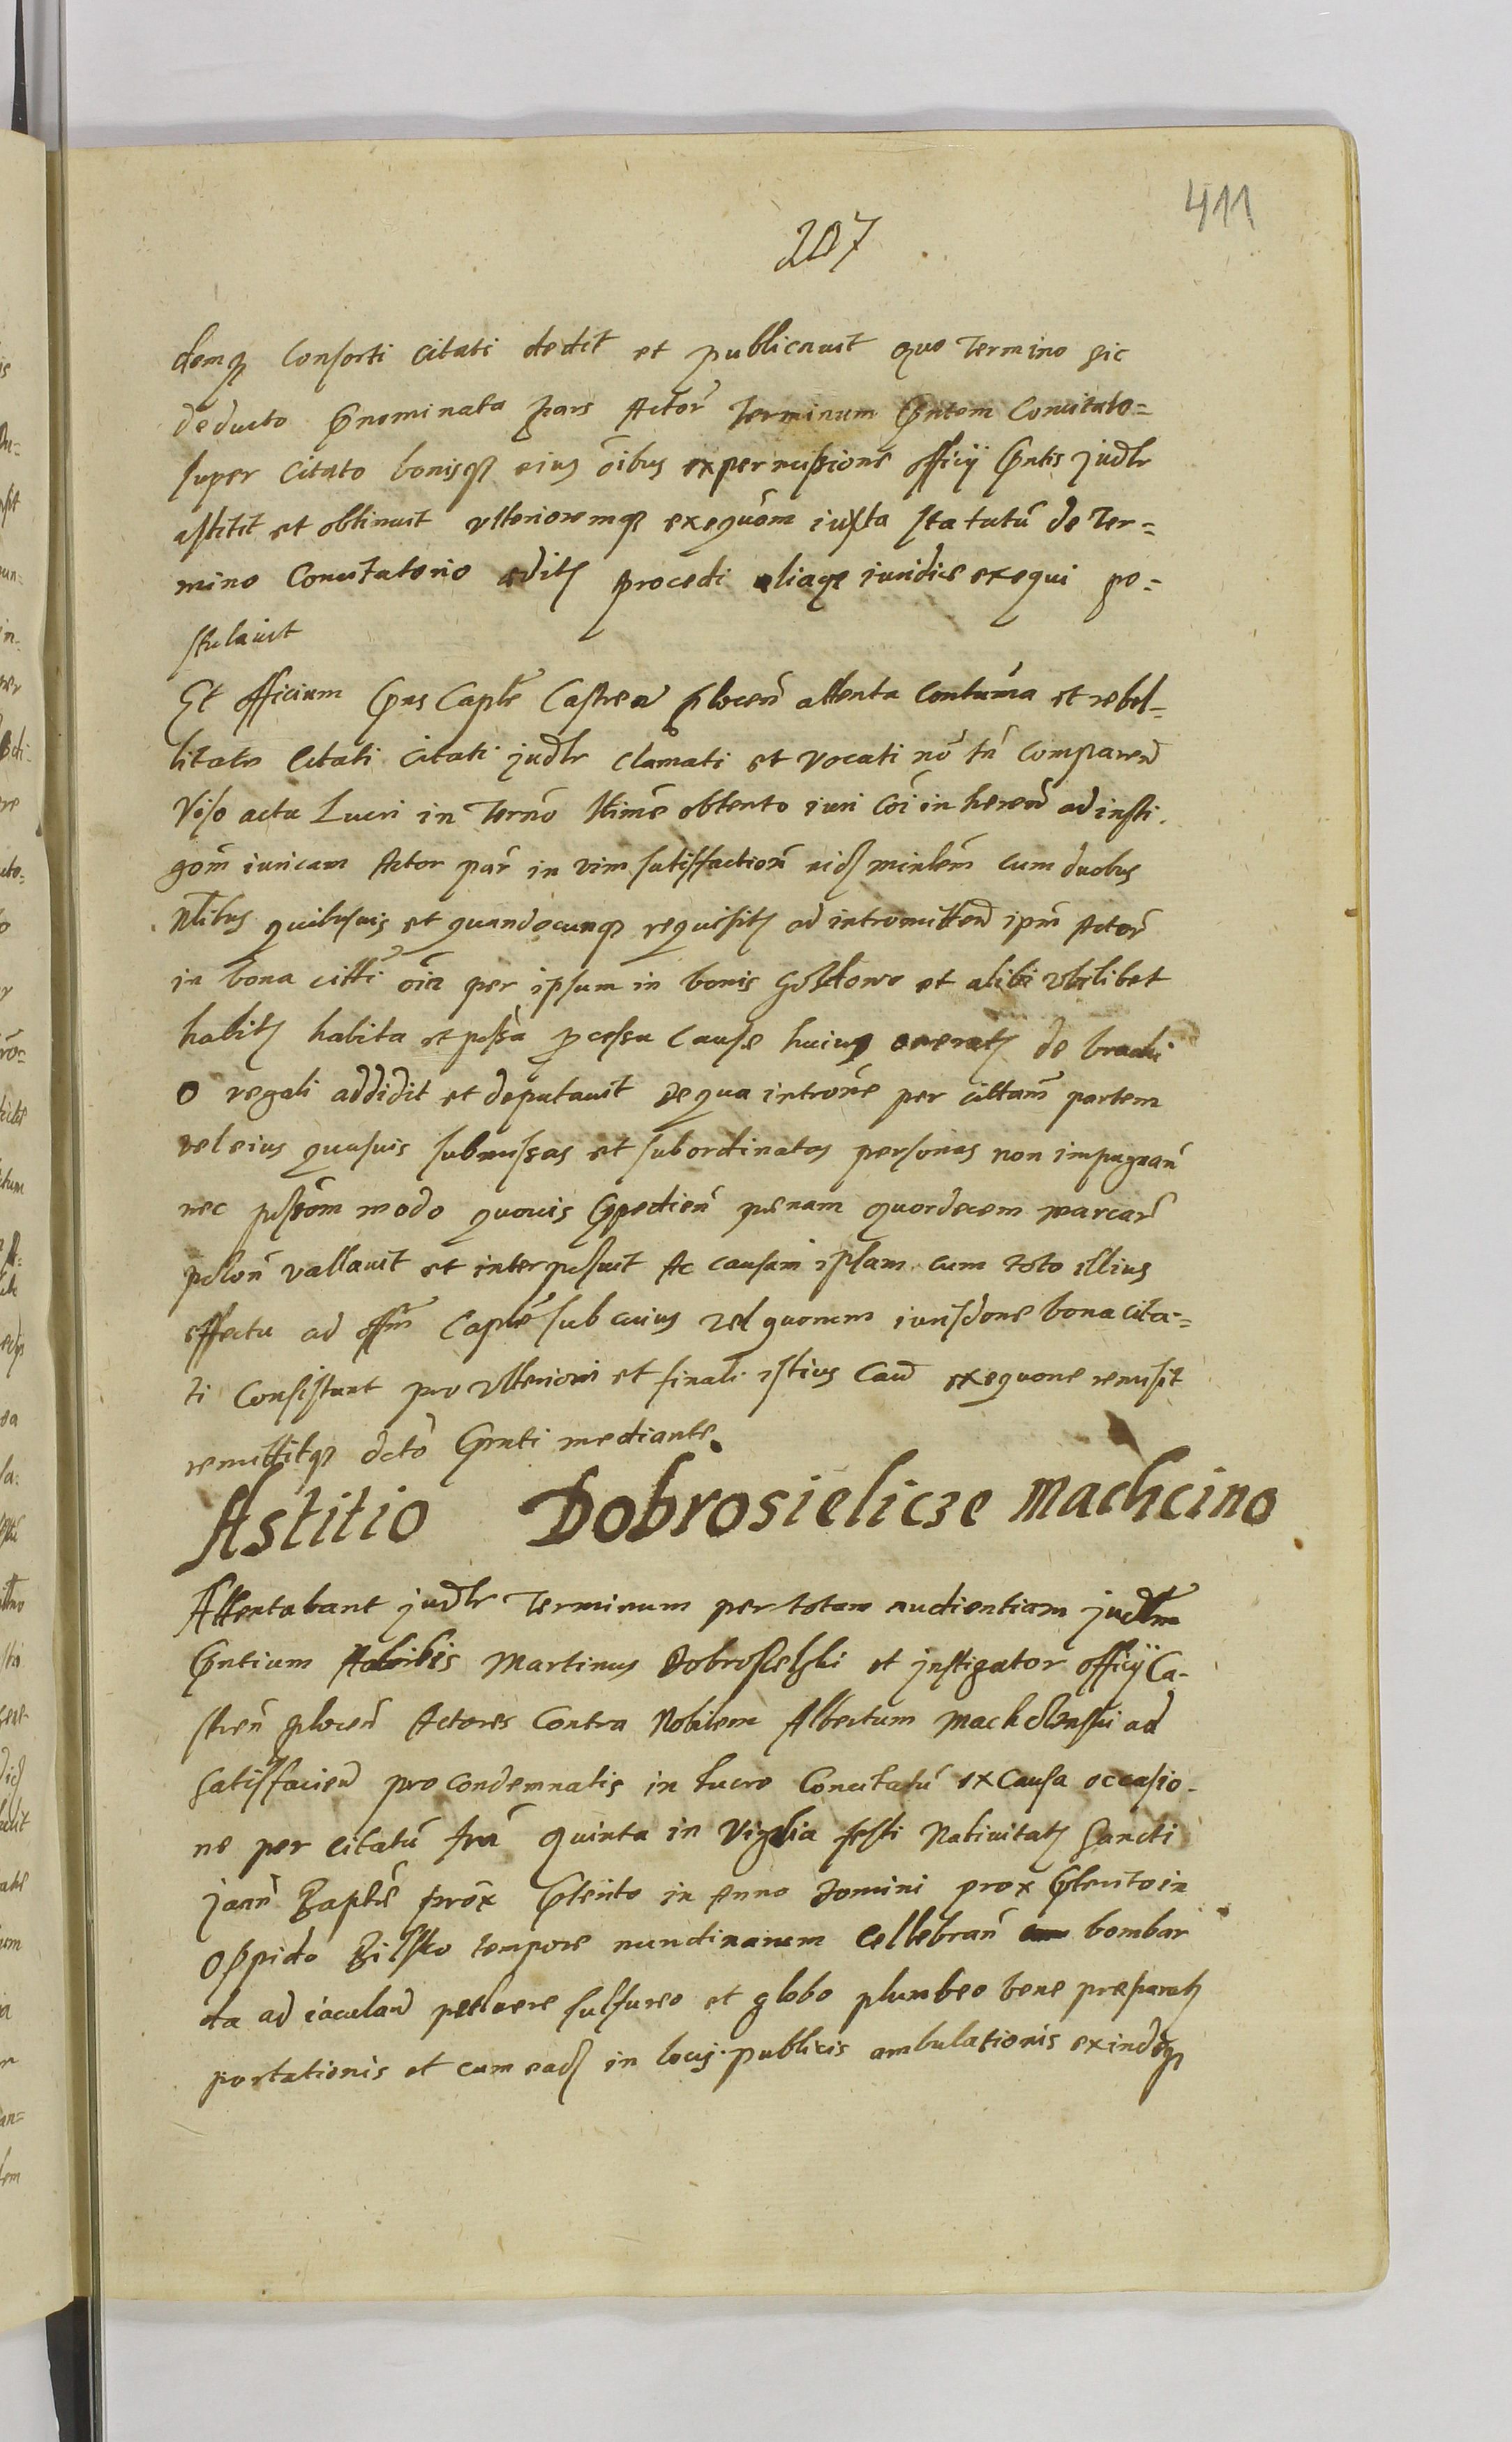 411
207
demq̃ Consorti citati dedit et publicauit quo Termino sic
deducto p̃nominata pars Actor̃ Terminum p̃ntem Concitato=
super citato bonisq̃ eius õibus ex permissione officij p̃ntis judlr
astitit et obtinuit vlterioremq̃ exequõm iuxta statutũ de Ter=
mino Concitatorio editꝭ procedi aliaqꝫ iuridice exequi po=
stulauit
Et officium p̃ns Capłe Castren̄ plocen̄ attenta Contumã et rebel=
litate Citati citati judlr clamati et vocati nõ tñ comparen̄
Viso actu Lucri in Terño obtento iuri cõi in heren̄ ad insti.
gõm iuricam Actor par̃ in vim satisfaction̄ eidꝭ minlem̃ cum duobus
Nlibus quibusuis et quandocunq̃ requisitꝭ ad intromitten̄ ipm̃ Actor̃
in bona citti õia per ipsum in bonis et alibi vbilibet
habitꝭ habita et possa p̱cessu Cause huius oneratꝭ de brachi
o regali addidit et deputauit de qua introne per cittam̃ partem
vel eius quasuis submissas et subordinatas personas non impugnan̄
nec possom̃ modo quouis p̃pedien̄ penam quordecem marcar̃
polon̄ vallauit et interposuit Ac causam ipsam cum toto illius
effectu ad offm̃ Capłe sub cuius vel quorum iurisdone bona cita=
ti Consistunt pro vlteriori et finali istius Cau͠ exequone remisit
remittitq̃ dcto p̃nti mediante.
Astitio Dobrosielicze Machcino
Attentabant judlr Terminum per totam audientiam judlm
p̃ntium Nobilis Martinus Dobrosielski et jnstigator officij Ca-
stren̄ plocen̄ Actores Contra Nobilem Albertum Machczinski ad
Satisfacien̄ pro condemnatis in lucro Concitatũ ex Causa occasio-
ne per citatũ frã Quinta in Vigilia festi Natiuitatꝭ Sancti
Joan̄ Baptẽ prõx p̃terito in Anno Domini prox p̃terito in
Oppido Bilsko tempore nundinarum Cellebran̄ bombar
da ad iaculan̄ puluere sulfureo et globo plumbeo bene preparatꝭ
portationis et cum eadꝭ in locis publicis ambulationis exindeq̃